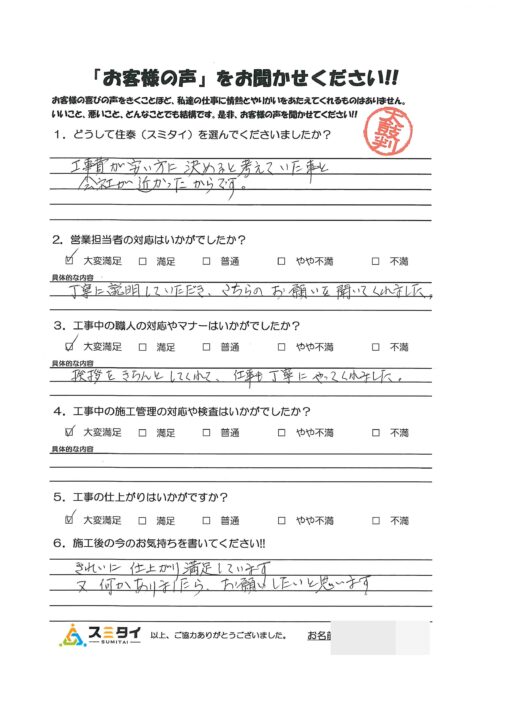 「お客様の声」をお聞かせください!!
お客様の喜びの声をきくことほど、私達の仕事に情熱とやりがいをあたえてくれるものはありません。
いいこと、悪いこと、どんなことでも結構です。是非、お客様の声を聞かせてください!!
太鼓判
1．どうして住泰（スミタイ）を選んでくださいましたか？
工事費が安い方に決めると考えていた事と
会社が近かったからです。
2．営業担当者の対応はいかがでしたか？
☑ 大変満足 □ 満足 □ 普通 □ やや不満 □ 不満
具体的な内容
丁寧に説明していただき、こちらのお願いを聞いてくれました。
3．工事中の職人の対応やマナーはいかがでしたか？
☑ 大変満足 □ 満足 □ 普通 □ やや不満 □ 不満
具体的な内容
挨拶をきちんとしてくれて、仕事も丁寧にやってくれました。
4．工事中の施工管理の対応や検査はいかがでしたか？
☑ 大変満足 □ 満足 □ 普通 □ やや不満 □ 不満
具体的な内容
5．工事の仕上がりはいかがですか？
☑ 大変満足 □ 満足 □ 普通 □ やや不満 □ 不満
6．施工後の今のお気持ちを書いてください!!
きれいに仕上がり満足しています
又何かありましたら、お願いしたいと思います
スミタイ 以上、ご協力ありがとうございました。 お名前
SUMITAI